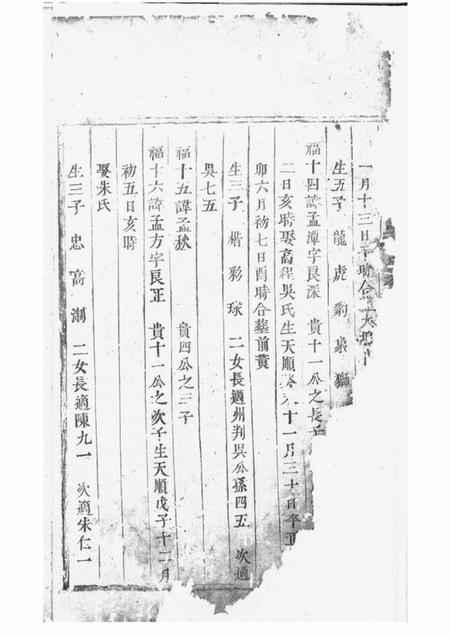 一月十三日午時合葬大
生五子 龍 虎 豹 象 獅
福十四諱孟潭字良深 貴十一公之長子
二日亥時娶高程吳氏生天順 十一月三十日 正
卯六月初七日酉時合墓前黃
生三子 楷 彩 球 二女長適州判吳公孫四五 次適
吳七五
福十五諱孟秋 貴四公之三子
福十六諱孟方字良正 貴十一公之次子生天順戊子十二月
初五日亥時
娶朱氏
生三子 忠 高 潮 二女長適陳九一 次適朱仁一